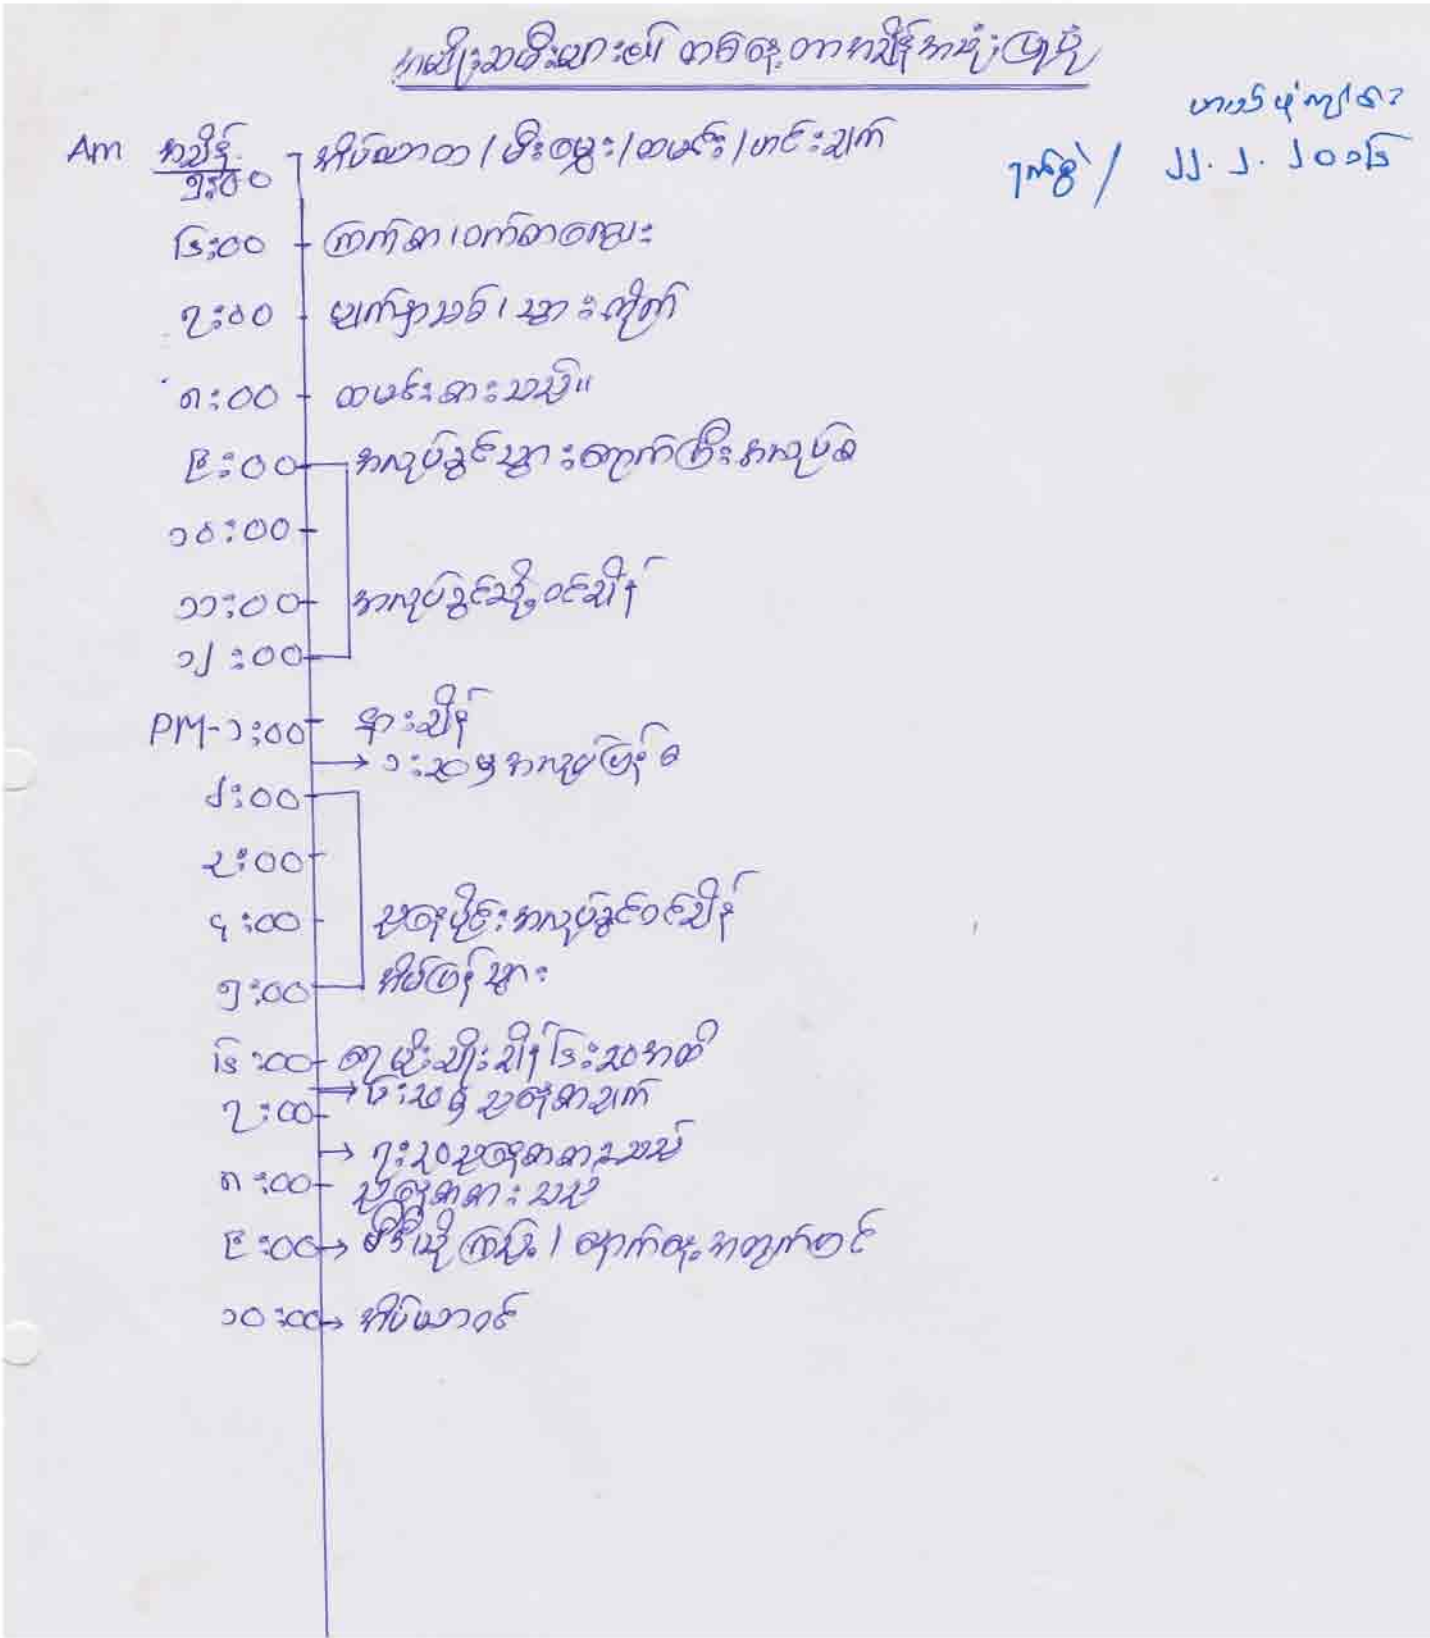 အမျိုးသမီးများ၏ တစ်နေ့တာအချိန်အသုံးပြုပုံ
ဟာဒ်ပုံကျွန်း
ရက်စွဲ / ၂၂. ၂. ၂၀၁၆
Am အချိန်
၅:၀၀ အိပ်ယာထ / မီးမွှေး / ထမင်း / ဟင်းချက်
၆:၀၀ ကြက်စာ၊ ဝက်စာကျွေး
၇:၀၀ မျက်နှာသစ်၊ သွားတိုက်
၈:၀၀ ထမင်းစားသည်။
၉:၀၀ အလုပ်ခွင်သွားရောက်ပြီးအလုပ်စ
၁၀:၀၀
၁၁:၀၀ အလုပ်ခွင်သို့ဝင်ချိန်
၁၂:၀၀
PM-၁:၀၀ နားချိန်
→ ၁:၃၀မှ အလုပ်ပြန်စ
၂:၀၀
၃:၀၀
၄:၀၀ ညနေပိုင်းအလုပ်ခွင်ဝင်ချိန်
၅:၀၀ အိမ်ပြန်သွား
၆:၀၀ ရေမိုးချိုးချိန် ၆:၃၀အထိ
→ ၆:၃၀မှ ညနေစာချက်
၇:၀၀
→ ၇:၃၀ညနေစာစားသည်
၈:၀၀ ညနေစာစားသည်
၉:၀၀→ တီဗီသို့ကြည့် / နောက်နေ့အတွက်ပြင်
၁၀:၀၀→ အိပ်ယာဝင်